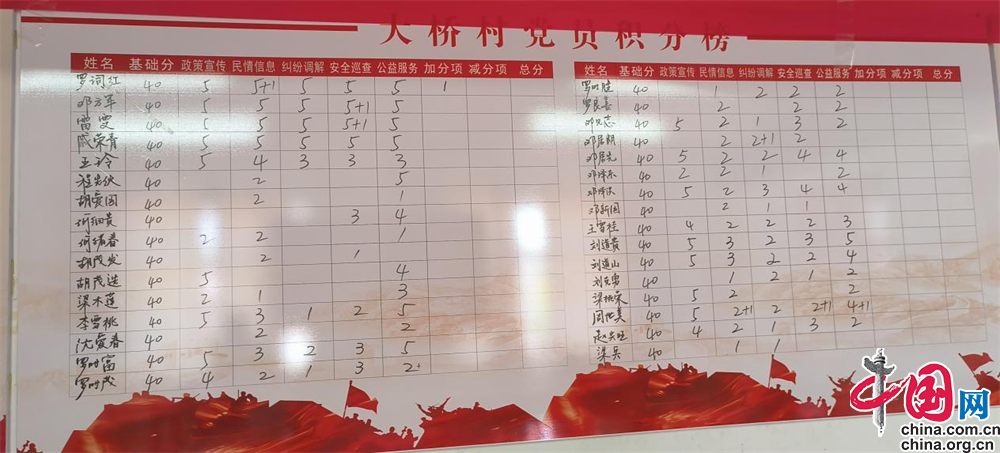 大桥村党员积分榜
姓名 基础分 政策宣传 民情信息 纠纷调解 安全巡查 公益服务 加分项 减分项 总分
罗词红 40 5 5+1 5 5 5 1
邓方军 40 5 5 5 5+1 5
雷雯 40 5 5 5 5+1 5
陈荣青 40 5 5 5 5 5
王玲 40 5 4 3 3 3
40 2 5
胡爱国 40 2 1
40 3 4
40 2 2 1
胡茂发 40 2 1
胡茂进 40 5 4
梁木莲 40 2 1 3
李雪桃 40 5 3 1 2 5
沈爱春 40 2 2
罗时富 40 5 3 2 3 5
罗时茂 40 4 2 1 3 2
姓名 基础分 政策宣传 民情信息 纠纷调解 安全巡查 公益服务 加分项 减分项 总分
40 1 2 2 2
罗良喜 40 2 2 2
40 5 2 1 3 2
40 2 2+1 2
40 5 2 2 4 4
40 2 2 1 2
40 5 2 3 4 4
邓新国 40 2 1 1
40 4 2 2 2 3
刘道贵 40 5 3 2 3 5
刘道山 40 5 3 2 2 4
40 1 2 1 2
梁桃荣 40 5 2 2
40 5 2+1 2 2+1 4+1
40 4 2 1 3 2
梁昊 40 1 1
中国网
china.com.cn
china.org.cn